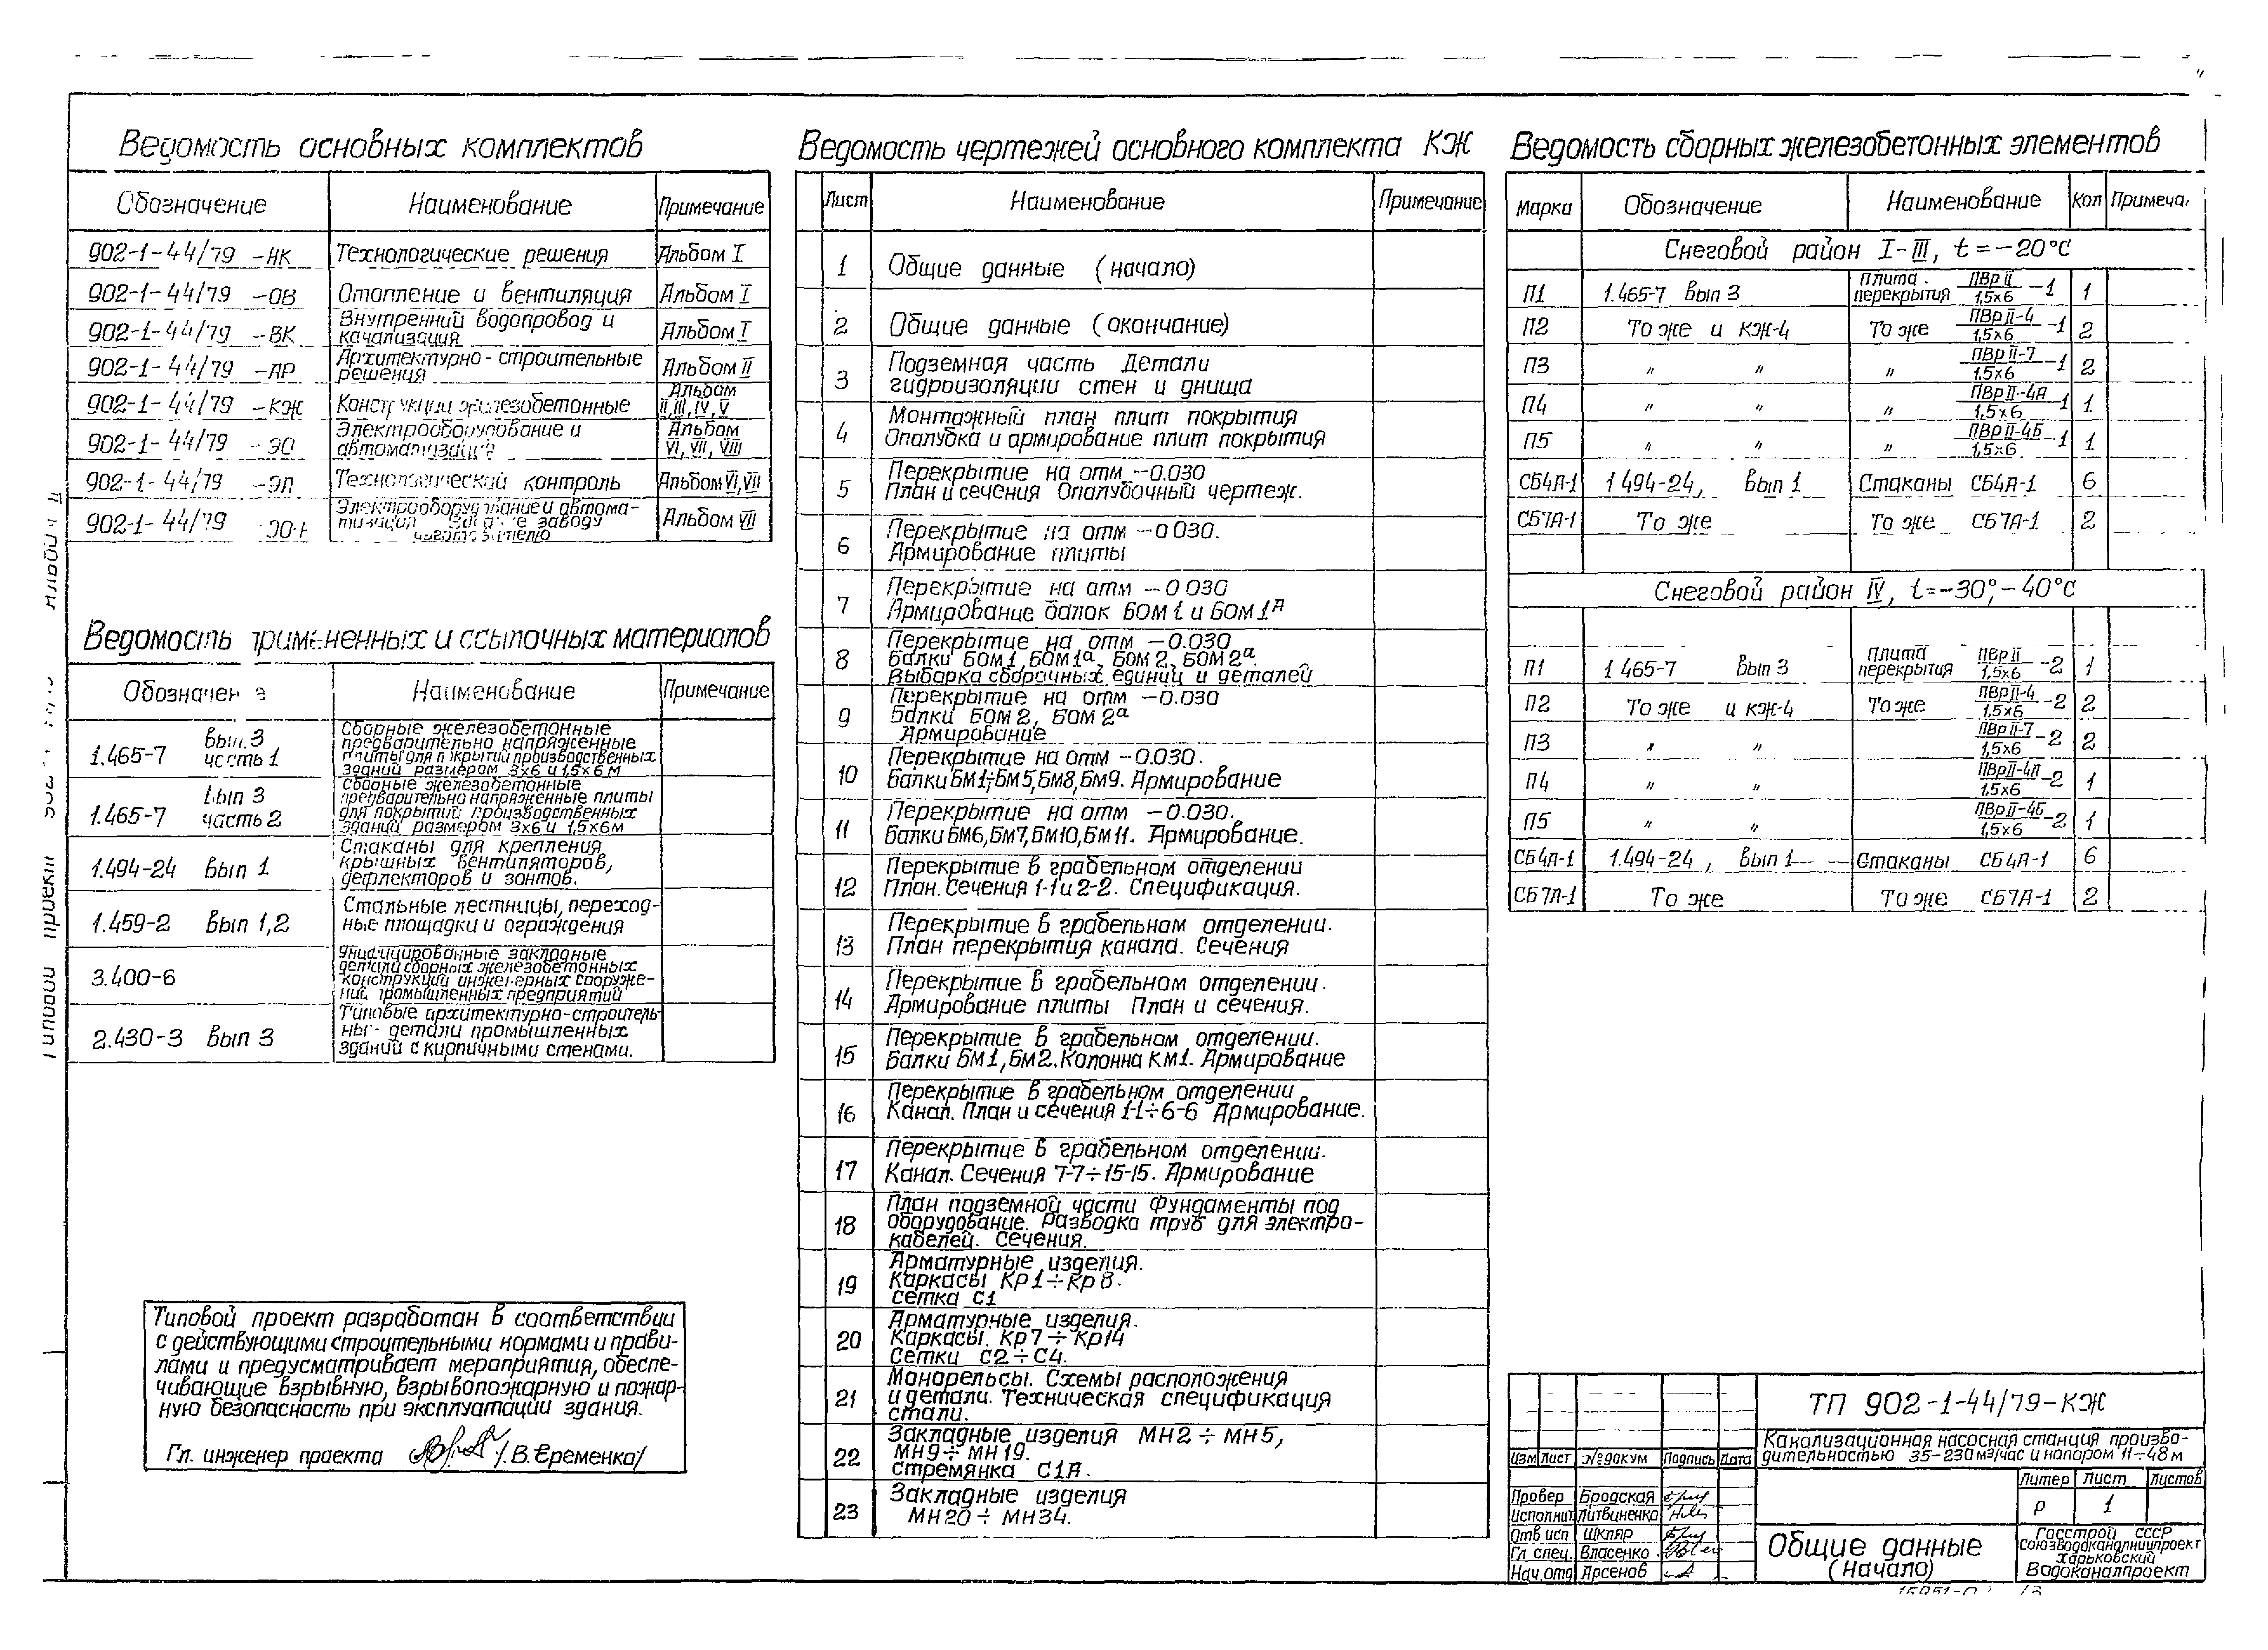 Ведомость основных комплектов
Обозначение Наименование Примечание
902-1-44/79 -НК Технологические решения Альбом I
902-1-44/79 -ОВ Отопление и вентиляция Альбом I
902-1-44/79 -ВК Внутренний водопровод и
канализация Альбом I
902-1-44/79 -АР Архитектурно-строительные
решения Альбом II
902-1-44/79 -КЖ Конструкции железобетонные Альбом
II, III, IV, V
902-1-44/79 -ЭО Электрооборудование и
автоматизация Альбом
VI, VII, VIII
902-1-44/79 -ЭЛ Технологический контроль Альбом VI, VII
902-1-44/79 Электрооборудование и автома-
тизация заводу
Альбом VII
Ведомость примененных и ссылочных материалов
Обозначение Наименование Примечание
1.465-7 Вып.3
часть 1
Сборные железобетонные
предварительно напряженные
плиты для покрытий производственных
зданий размером 3х6 и 1,5х6 м
1.465-7 Вып 3
часть 2
Сборные железобетонные
предварительно напряженные плиты
для покрытий производственных
зданий размером 3х6 и 1,5х6м
1.494-24 Вып 1
Стаканы для крепления
крышных вентиляторов,
дефлекторов и зонтов.
1.459-2 Вып 1,2
Стальные лестницы, переход-
ные площадки и ограждения
3.400-6
Унифицированные закладные
детали сборных железобетонных
конструкций инженерных сооруже-
ний промышленных предприятий
2.430-3 Вып 3
Типовые архитектурно-строитель-
ные детали промышленных
зданий с кирпичными стенами.
Типовой проект разработан в соответствии
с действующими строительными нормами и прави-
лами и предусматривает мероприятия, обеспе-
чивающие взрывную, взрывопожарную и пожар-
ную безопасность при эксплуатации здания.
Гл. инженер проекта /В. Еременко/
Ведомость чертежей основного комплекта КЖ
Лист Наименование Примечание
1 Общие данные (начало)
2 Общие данные (окончание)
3 Подземная часть Детали
гидроизоляции стен и днища
4 Монтажный план плит покрытия
Опалубка и армирование плит покрытия
5 Перекрытие на отм -0.030
План и сечения Опалубочный чертеж.
6 Перекрытие на отм -0 030.
Армирование плиты
7 Перекрытие на отм -0 030
Армирование балок БОМ 1 и БОМ 1А
8 Перекрытие на отм -0.030
Балки БОМ 1, БОМ 1а, БОМ 2, БОМ 2а.
Выборка сборочных единиц и деталей
9 Перекрытие на отм -0.030
Балки БОМ 2, БОМ 2а
Армирование
10 Перекрытие на отм -0.030.
Балки БМ1÷БМ5, БМ8, БМ9. Армирование
11 Перекрытие на отм -0.030.
Балки БМ6, БМ7, БМ10, БМ11. Армирование.
12 Перекрытие в грабельном отделении
План. Сечения 1-1 и 2-2. Спецификация.
13 Перекрытие в грабельном отделении.
План перекрытия канала. Сечения
14 Перекрытие в грабельном отделении.
Армирование плиты План и сечения.
15 Перекрытие в грабельном отделении.
Балки БМ1, БМ2. Колонна КМ1. Армирование
16 Перекрытие в грабельном отделении
Канал. План и сечения 1-1÷6-6 Армирование.
17 Перекрытие в грабельном отделении.
Канал. Сечения 7-7÷15-15. Армирование
18 План подземной части Фундаменты под
оборудование. Разводка труб для электро-
кабелей. Сечения.
19 Арматурные изделия.
Каркасы КР1÷КР8.
Сетка С1
20 Арматурные изделия.
Каркасы. КР7÷КР14
Сетки С2÷С4.
21 Монорельсы. Схемы расположения
и детали. Техническая спецификация
стали.
22 Закладные изделия МН2÷МН5,
МН9÷МН19.
Стремянка С1А.
23 Закладные изделия
МН20÷МН34.
Ведомость сборных железобетонных элементов
Марка Обозначение Наименование Кол Примеча
Снеговой район I-III, t=-20°С
П1 1.465-7 Вып 3 Плита перекрытия ПВрII/1,5х6-1 1
П2 То же и КЖ-4 То же ПВрII-4/1,5х6-1 2
П3 " " " ПВрII-7/1,5х6-1 2
П4 " " " ПВрII-4А/1,5х6-1 1
П5 " " " ПВрII-4Б/1,5х6-1 1
СБ4А-1 1 494-24, Вып 1 Стаканы СБ4А-1 6
СБ7А-1 То же То же СБ7А-1 2
Снеговой район IV, t=-30°,-40°С
П1 1 465-7 Вып 3 Плита перекрытия ПВрII/1,5х6-2 1
П2 То же и КЖ-4 То же ПВрII-4/1,5х6-2 2
П3 " " ПВрII-7/1,5х6-2 2
П4 " " ПВрII-4А/1,5х6-2 1
П5 " " ПВрII-4Б/1,5х6-2 1
СБ4А-1 1.494-24, Вып 1 Стаканы СБ4А-1 6
СБ7А-1 То же То же СБ7А-1 2
ТП 902-1-44/79-КЖ
Канализационная насосная станция произво-
дительностью 35-230 м³/час и напором 11÷48 м
Изм Лист № докум Подпись Дата
Литер Лист Листов
Р 1
Провер Бродская
Исполнит. Литвиненко
Отв исп Шкляр
Гл спец. Власенко
Нач. отд Арсенов
Общие данные
(Начало)
Госстрой СССР
Союзводоканалниипроект
Харьковский
Водоканалпроект
Типовой проект